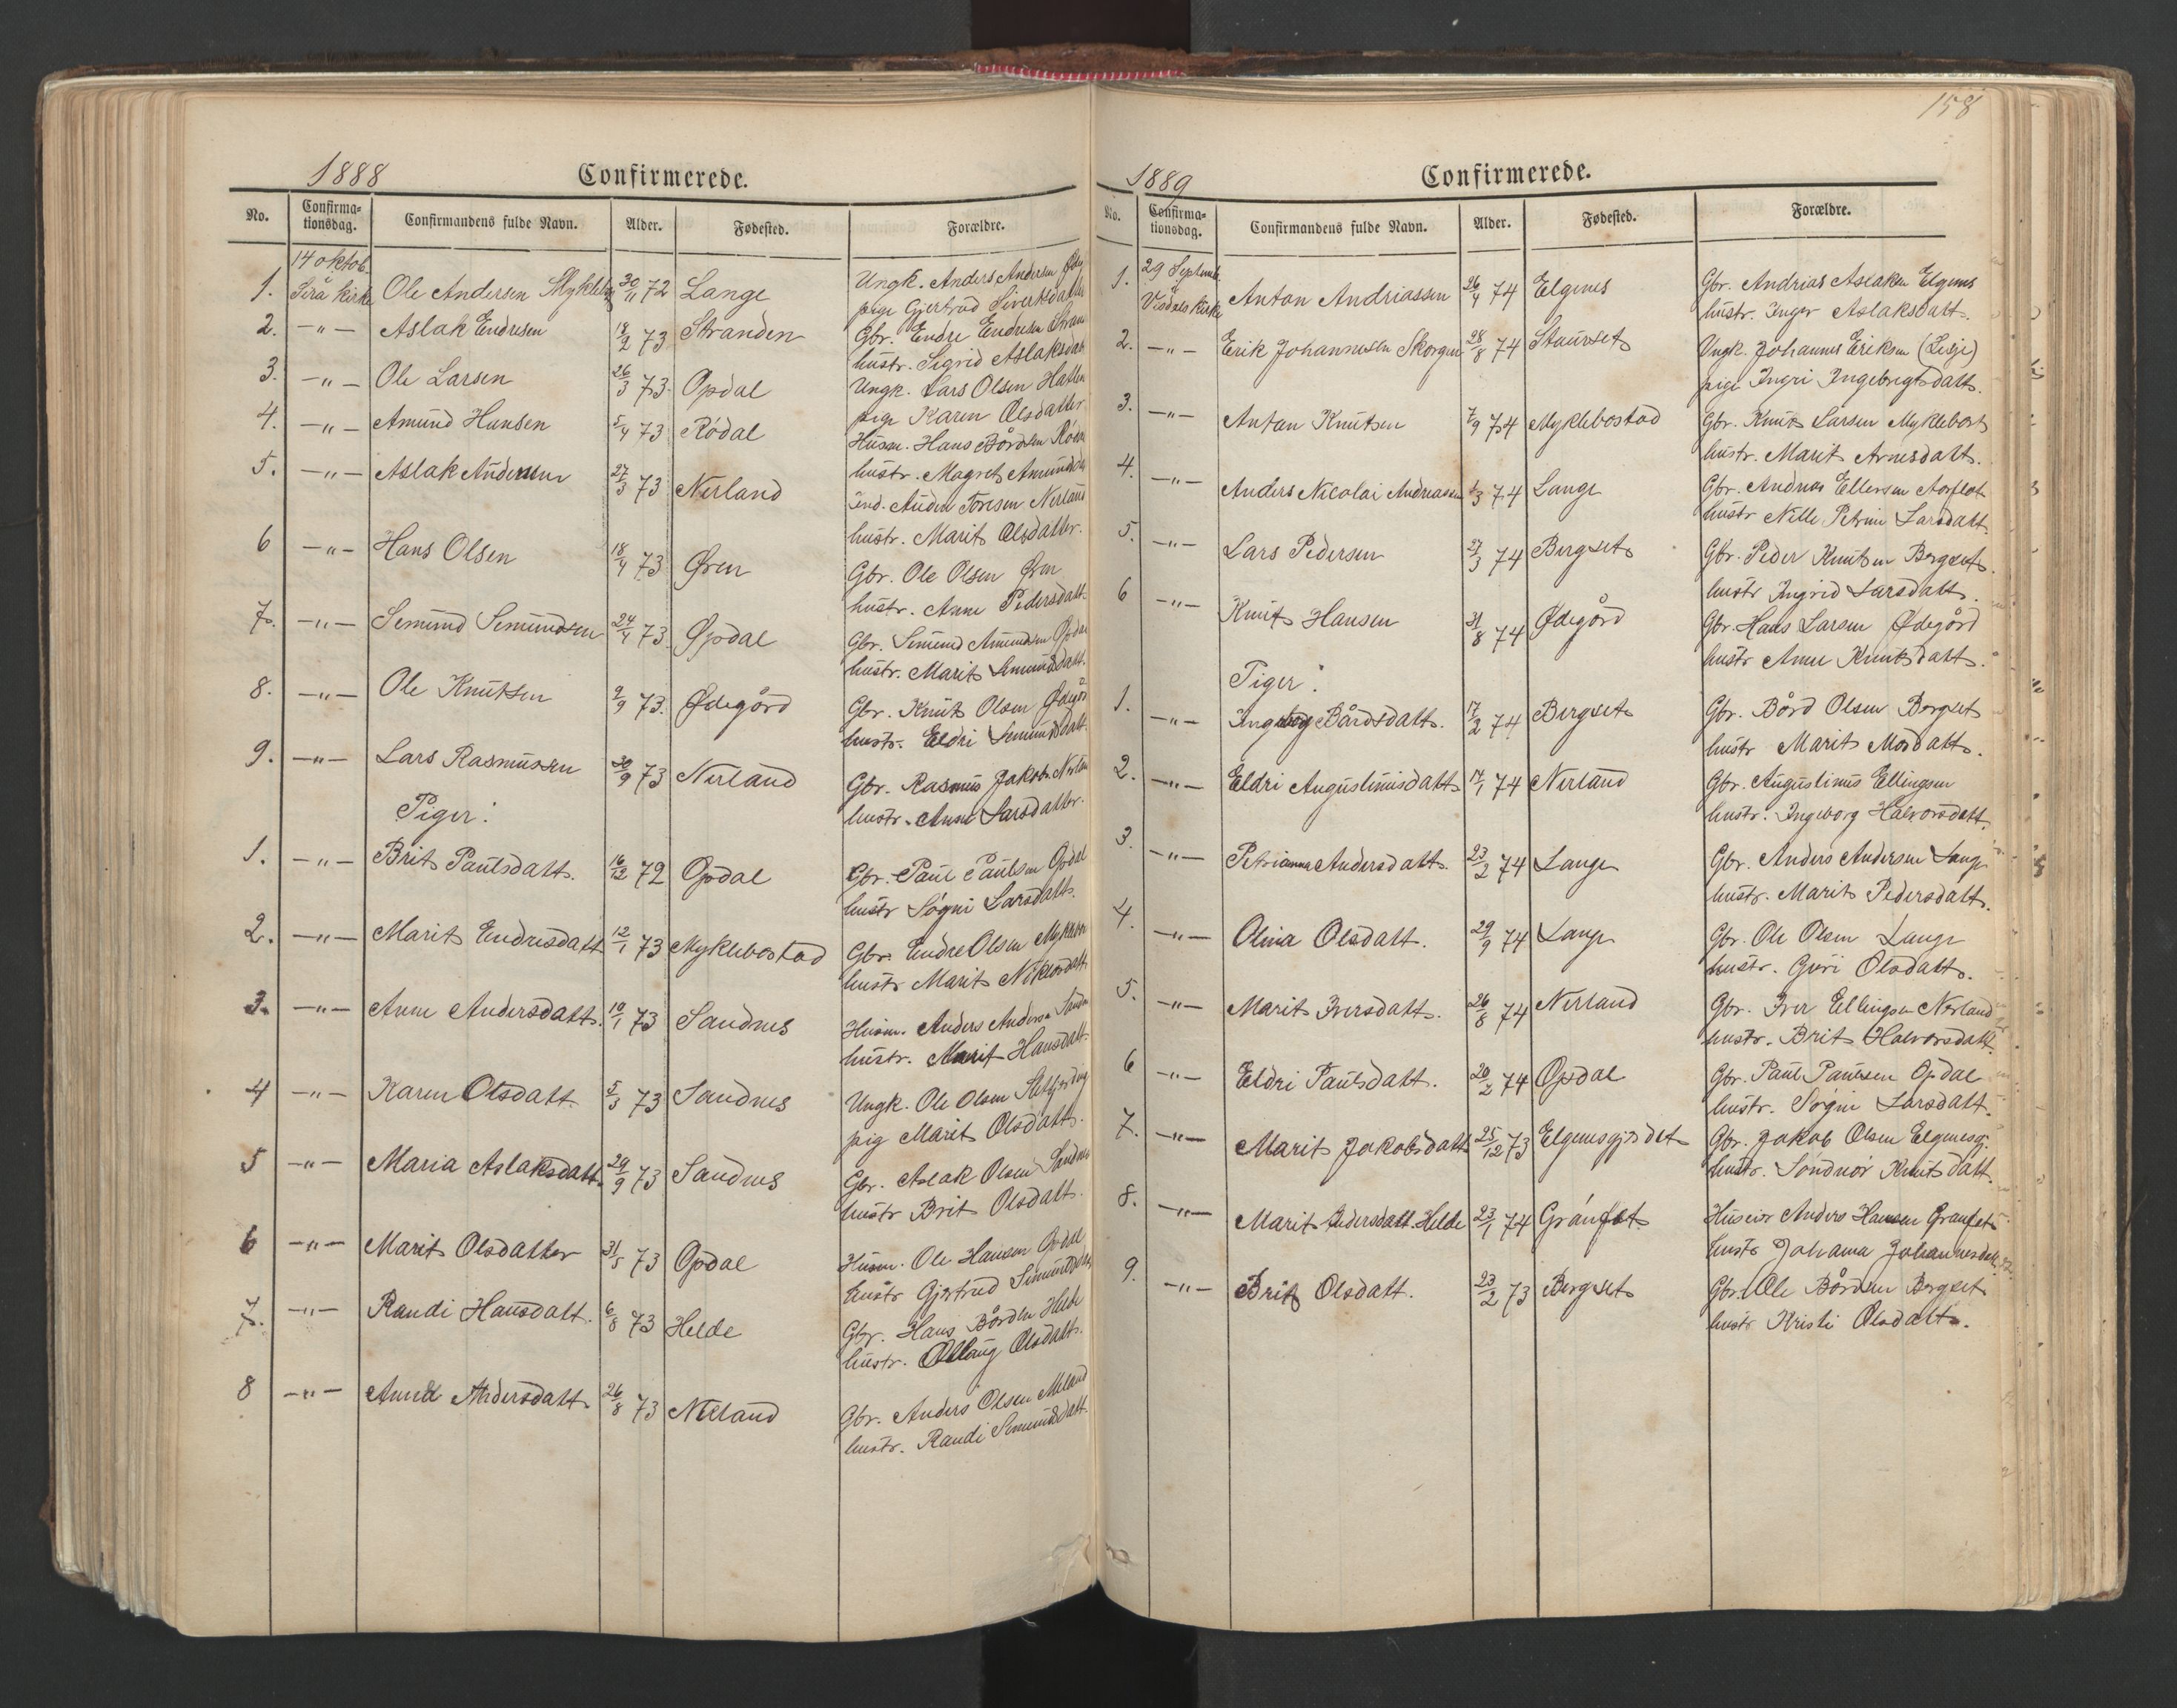 1888 Confirmerede.
No. Confirma-tionsdag. Confirmandens fulde Navn. Alder. Fødested. Forældre.
14 oktob.
1. Sira Kirke Ole Andersen 30/11 72 Lange Ungk. Anders Andersen
pige Gjertrud Sivertsdatter
2. -"- Aslak Endresen 18/2 73 Stranden Gbr. Endre Endresen
hustr. Sigrid Aslaksdatt
3. -"- Ole Larsen 26/3 73. Opdal Ungk. Lars Olsen
pige Karen Olsdatter
4. -"- Amund Hansen 5/4 73 Rødal Husm. Hans Bårdsen
hustr. Magret
5. -"- Aslak Andersen 27/3 73 Nerland Toresen Nerland
hustr. Marit Olsdatter.
6 -"- Hans Olsen 18/4 73 Øren Gbr. Ole Olsen Øren
hustr. Anne Pedersdatt.
7. -"- Semund Semundsen 24/4 73. Opdal Gbr. Semund Amundsen Opdal
hustr. Marit Semundsdatt.
8. -"- Ole Knutsen 9/9 73. Ødegård Gbr. Knut Olsen Ødegård
hustr. Eldri Semundsdatt.
9. -"- Lars Rasmussen 30/9 73 Nerland Gbr. Rasmus Jakobs. Nerland
hustr. Anne Larsdatter.
Piger:
1. -"- Brit Paulsdatt. 16/12 72 Opdal Gbr. Paul Paulsen Opdal
hustr Sögni Larsdatt.
2. -"- Marit Endresdatt. 12/1 73 Myklebostad Gbr. Endre Olsen
hustr Marit
3. -"- Anne Andersdatt. 19/1 73 Sandnes Husm. Anders Andersen
hustr. Marit Hansdatt.
4 -"- Karen Olsdatt. 5/3 73 Sandnes Ungk. Ole Olsen
pig Marit Olsdatt.
5 -"- Maria Aslaksdatt. 29/9 73 Sandnes Gbr. Aslak Olsen Sandnes
hustr Brit Olsdatt.
6 -"- Marit Olsdatter 31/5 73 Opdal Husm. Ole Hansen Opdal
hustr Gjertrud
7. -"- Randi Hansdatt. 6/8 73 Helde Gbr. Hans Bårdsen Helde
hustr. Olsdatt.
8 -"- Andersdatt. 26/8 73 Gbr. Anders Olsen
hustr. Randi Semundsdatt.
158
1889 Confirmerede.
No. Confirma-tionsdag. Confirmandens fulde Navn. Alder. Fødested. Forældre.
1. 29 Septemb. Anton Andriassen 26/4 74 Elgenes Gbr. Andrias Aslaksen Elgenes
Visdals Kirke hustr. Inger Aslaksdatt.
2. -"- Erik Johannesen Skorgen 28/8 74 Staurset Ungk. Johannes Eriksen (Lesje)
pige Ingri Ingebrigtsdatt.
3. -"- Anton Knutsen 7/9 74 Myklebostad Gbr. Knut Larsen Myklebost
hustr. Marit Arnesdatt.
4. -"- Anders Nicolai Andreassen 74 Lange Gbr. Andreas Ellensen
hustr Nille Larsdatt.
5. -"- Lars Pedersen 27/3 74 Bergset Gbr. Peder Knutsen Bergset.
hustr Ingrid Larsdatt.
6 -"- Knut Hansen 31/8 74 Ødegård Gbr. Hans Larsen Ødegård
hustr Anne Knutsdatt.
Piger:
1. -"- Ingeborg Bårdsdatt. 17/2 74 Bergset Gbr. Bård Olsen Bergset
hustr Marit
2. -"- Eldri Augustinusdatt. 17/1 74 Nerland Gbr. Augustinus Ellingsen
hustr. Ingeborg Halvorsdatt.
3. -"- Petrianna Andersdatt. 23/2 74 Lange Gbr. Anders Andersen Lange
hustr. Marit Pedersdatt.
4. -"- Olina Olsdatt. 29/9 74 Lange Gbr. Ole Olsen Lange
hustr. Guri Olsdatt.
5. -"- Marit Iversdatt. 26/8 74 Nerland Gbr. Iver Ellingsen Nerland
hustr. Brit Halvorsdatt.
6 -"- Eldri Paulsdatt. 20/2 74 Opdal Gbr. Paul Paulsen Opdal
hustr. Sögni Larsdatt.
7. -"- Marit Jakobsdatt. 25/12 73 Elgenesgjerdet Gbr. Jakob Olsen Elgenesgj.
hustr. Knutsdatt.
8. -"- Marit Pedersdatt. Helde 23/1 74 Granset Anders Hansen Granset
hustr Johanna Johannesdatt.
9. -"- Brit Olsdatt. 23/2 73 Bergset Gbr. Ole Bårdsen Bergset
hustr Kristi Olsdatt.